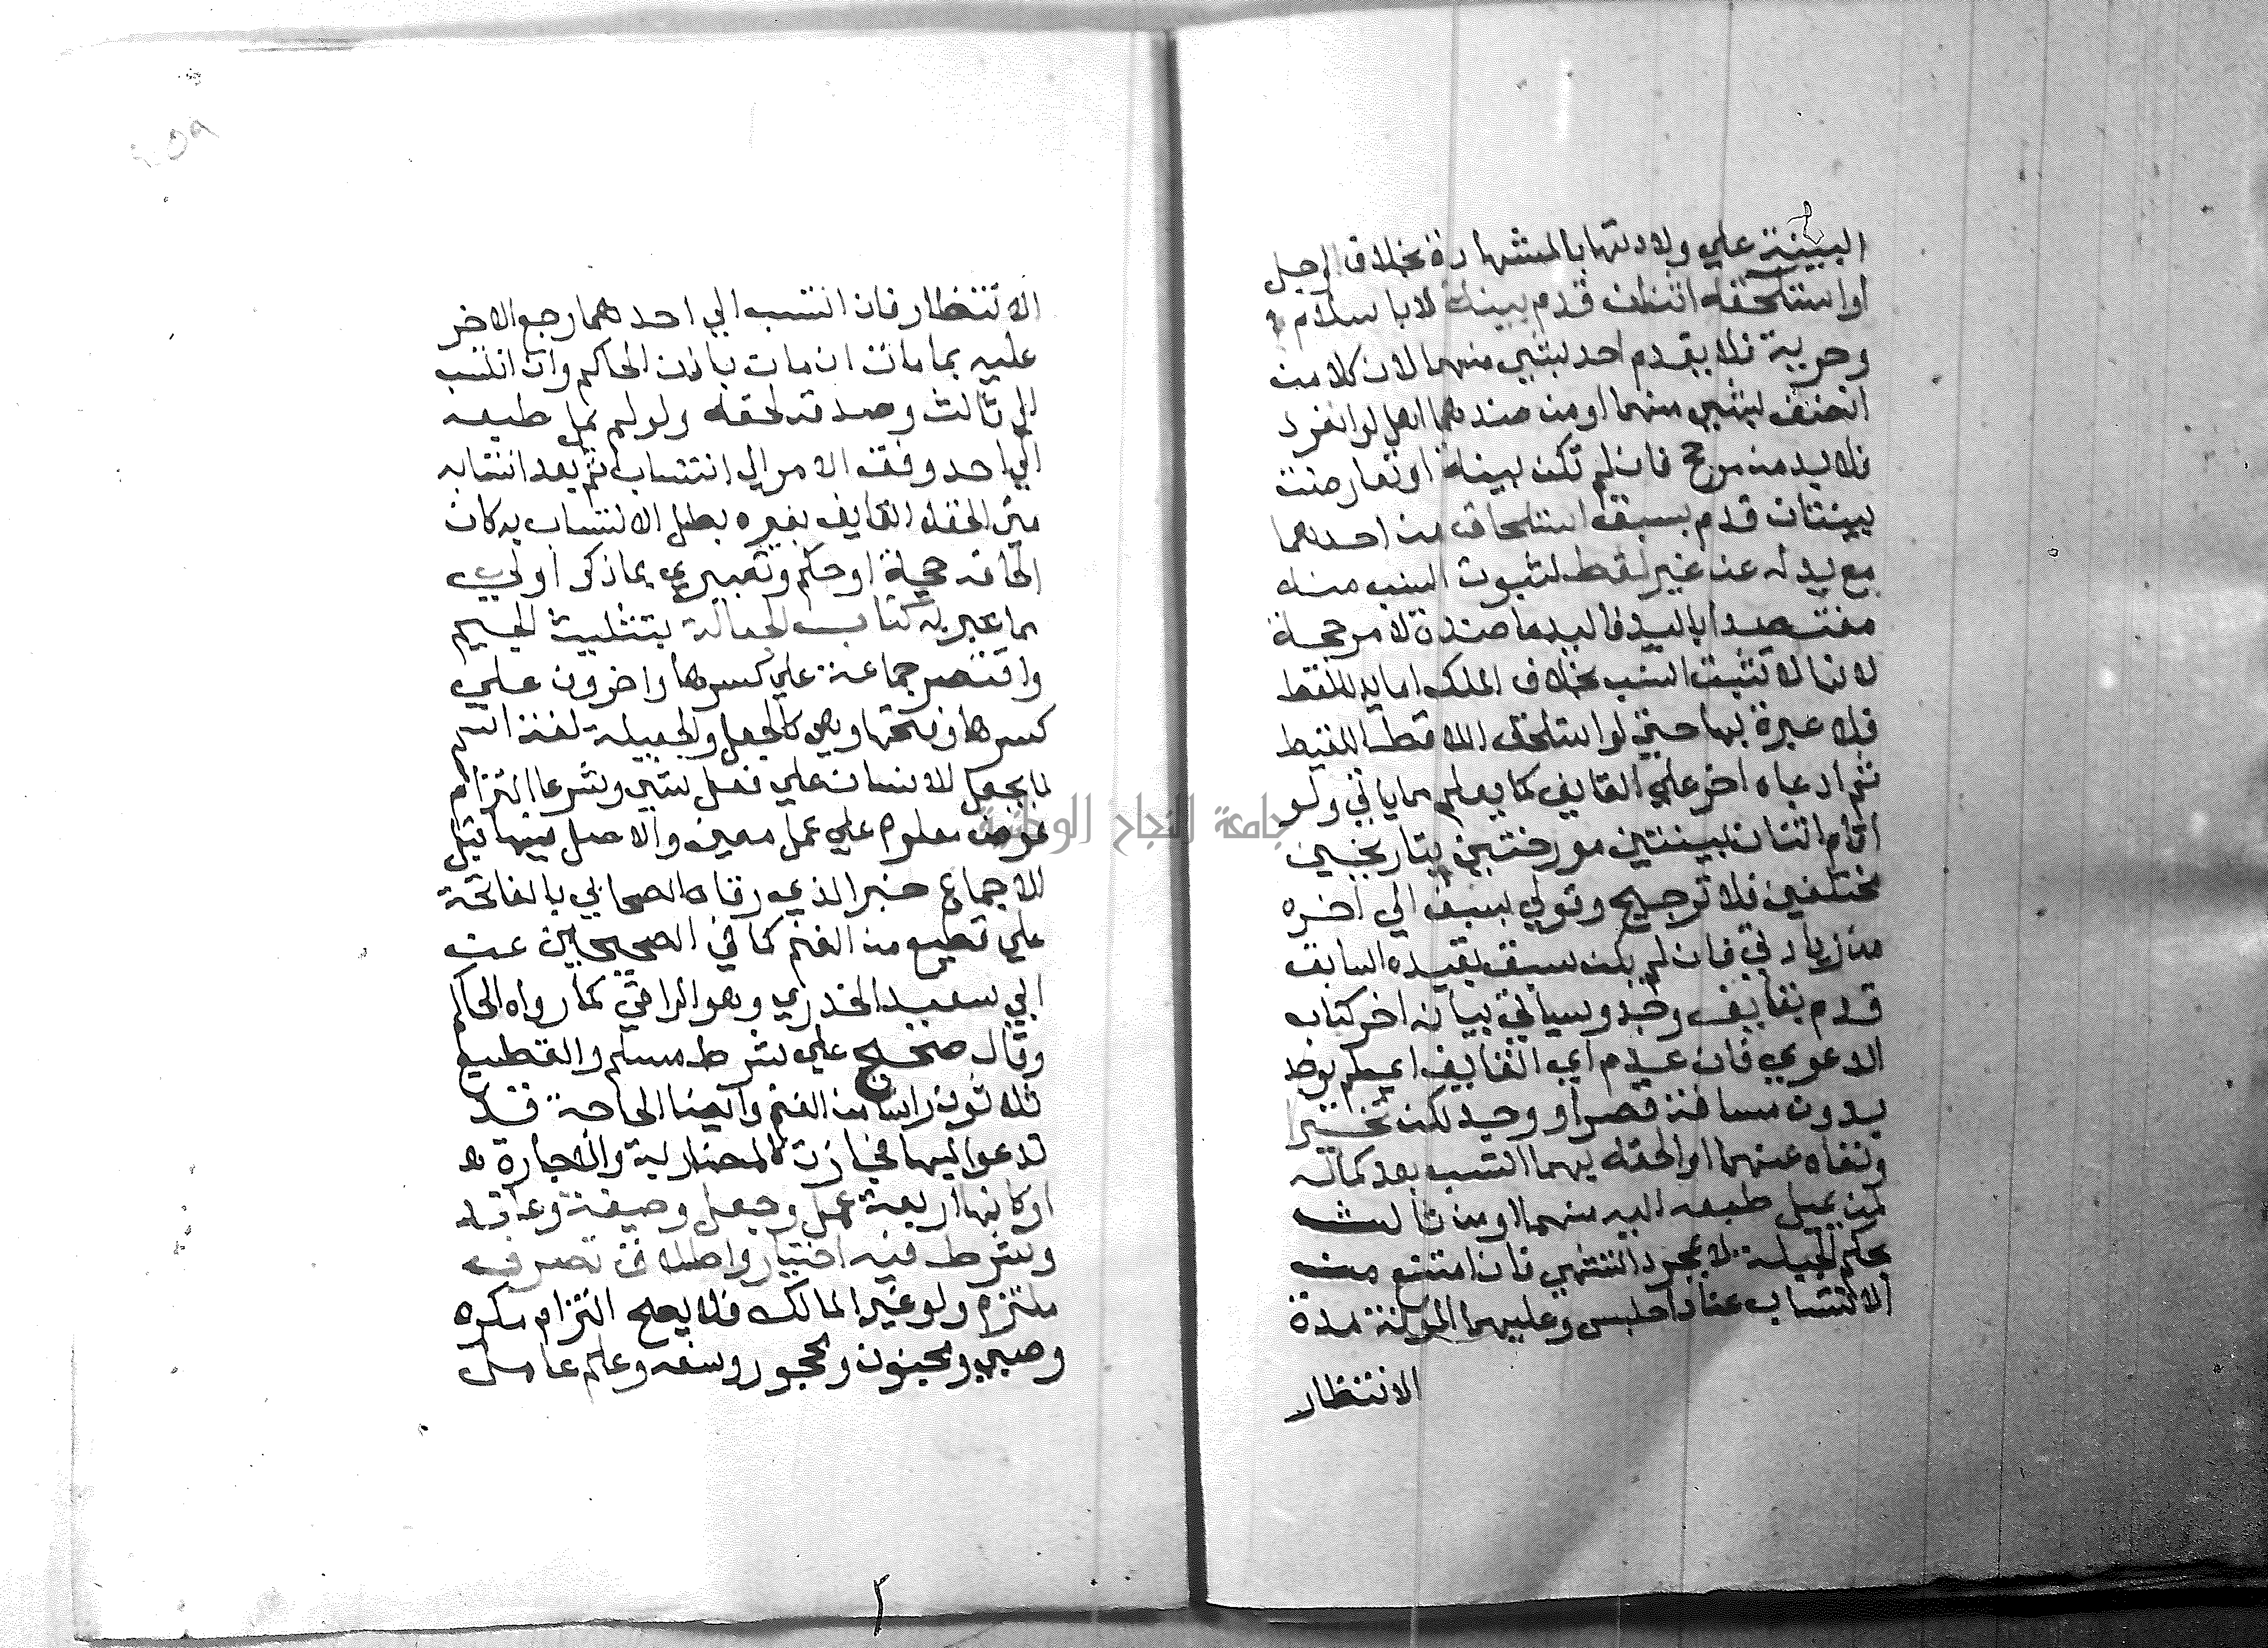 البينة علي ولادتها بالمشهادة بخلاف الرجل
او استلحقه اثنان قدم ببينة لا باسلام
وحرية فلا يقدم احد بشي منهما لان كلا من
اتصف بشي منهما او من ضدهما اهل لو انفرد
فلا بد من مرجح فان لم تكن بينة او تعارضت
بينتان قدم بسبق استلحاق من احدهما
مع يد له عن غير لقط لثبوت النسب منه
معتضدا باليد فاليد عاضدة لا مرجحة
لانها لا تثبت النسب بخلاف الملك اما يد الملتقط
فلا عبرة بها حتي لو استلحق اللاقط اللقيط
ثم ادعاه اخر علي القايف كما يعلم مما ياتي ولو
اقام اثنان بينتين مورختين بتاريخين
مختلفين فلا ترجيح وقولي بسبق الي اخره
من زيادتي فان لم يكن سبق بقيده السابق
قدم بقايف وجد وسياتي بيانه اخر كتاب
الدعوي فان عدم اي القايف اي لم يوجد
بدون مسافة قصر او وجد لكن تحير
ونفاه عنهما او الحقه بهما انتسب بعد كماله
لمن يميل طبعه اليه منهما او من ثالث
بحكم الجبلة لا بمجرد التشهي فان امتنع من
الانتساب عنادا حبس وعليهما المونة مدة
الانتظار
الانتظار فان انتسب الي احدهما رجع الاخر
عليه بما مانه ان مات باذن الحاكم وان انتسب
الي ثالث وصدقه لحقه ولو لم يمل طبعه
الي احد وقف الامر الي انتساب ثم بعد انتسابه
متي الحقه القايف بغيره بطل الانتساب به كان
الحاقه حجة او حكم وتعبيري بما ذكر اولي
مما عبر به كتاب الجعالة بتثليث الجيم
واقتصر جماعة علي كسرها واخرون علي
كسرها وفتحها وهي كالجعل والجعيلة لغة اسم
لما يجعل للانسان علي فعل شي وشرعا التزام
عوض معلوم علي عمل معين والاصل فيها قبل
الاجماع خبر الذي رقاه الصحابي بالفاتحة
علي قطيع من الغنم كما في الصحيحين عن
ابي سعيد الخدري وهو الراقي كما رواه الحاكم
وقال صحيح علي شرط مسلم والقطيع
ثلاثون راسا من الغنم وايضا الحاجة قد
تدعوا اليها فجازت كالمضاربة والاجارة
اركانها اربعة عمل وجعل وصيغة وعاقد
وشرط فيه اختيار واطلاق تصرف
ملتزم ولو غير المالك فلا يصح التزام مكره
وصبي ومجنون ومحجور وسفه وعلم عامل
جامعة النجاح الوطنية